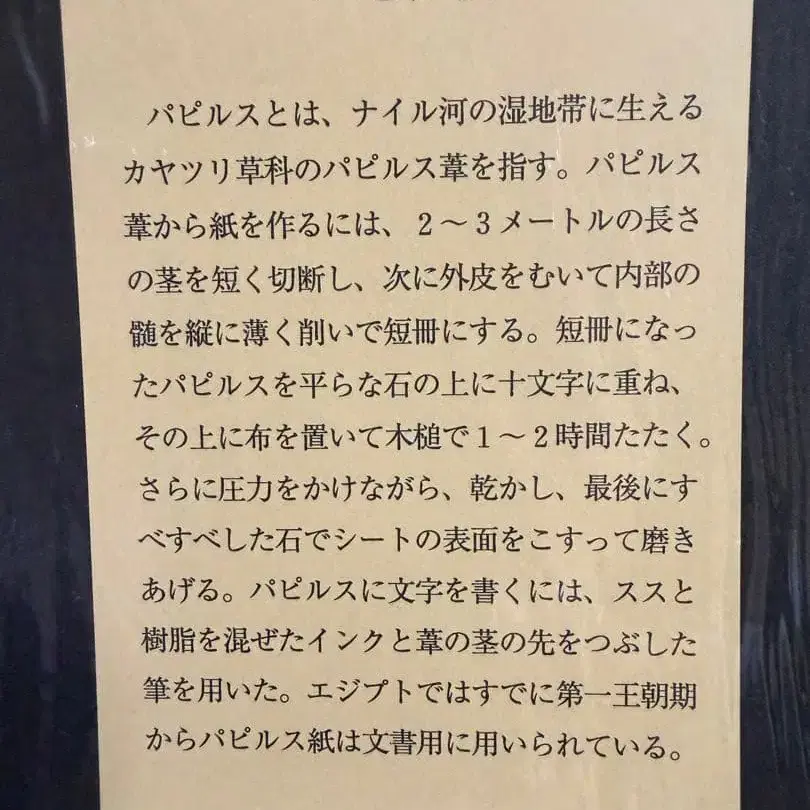 パピルスとは、ナイル河の湿地帯に生える
カヤツリ草科のパピルス葦を指す。パピルス
葦から紙を作るには、2〜3メートルの長さ
の茎を短く切断し、次に外皮をむいて内部の
髄を縦に薄く削いで短冊にする。短冊になっ
たパピルスを平らな石の上に十文字に重ね、
その上に布を置いて木槌で1〜2時間たたく。
さらに圧力をかけながら、乾かし、最後にす
べすべした石でシートの表面をこすって磨き
あげる。パピルスに文字を書くには、ススと
樹脂を混ぜたインクと葦の茎の先をつぶした
筆を用いた。エジプトではすでに第一王朝期
からパピルス紙は文書用に用いられている。